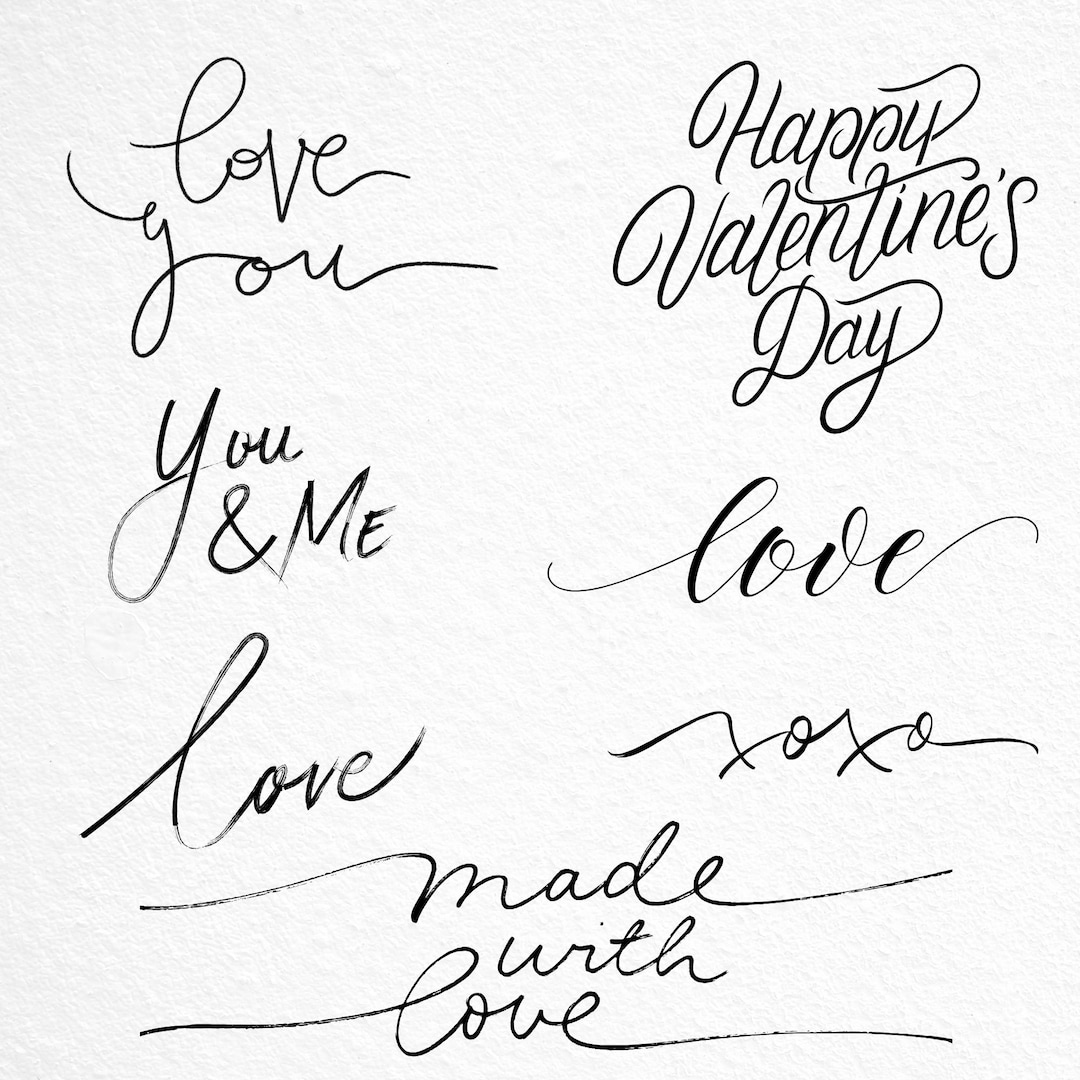 love
you
Happy
Valentine's
Day
You
& ME
love
love
xoxo
made
with
love